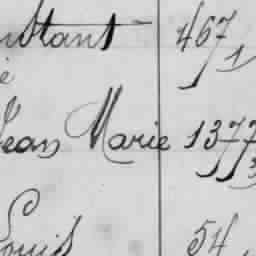 nstant 467
1
e
Jean Marie 1377
3
Louis 54